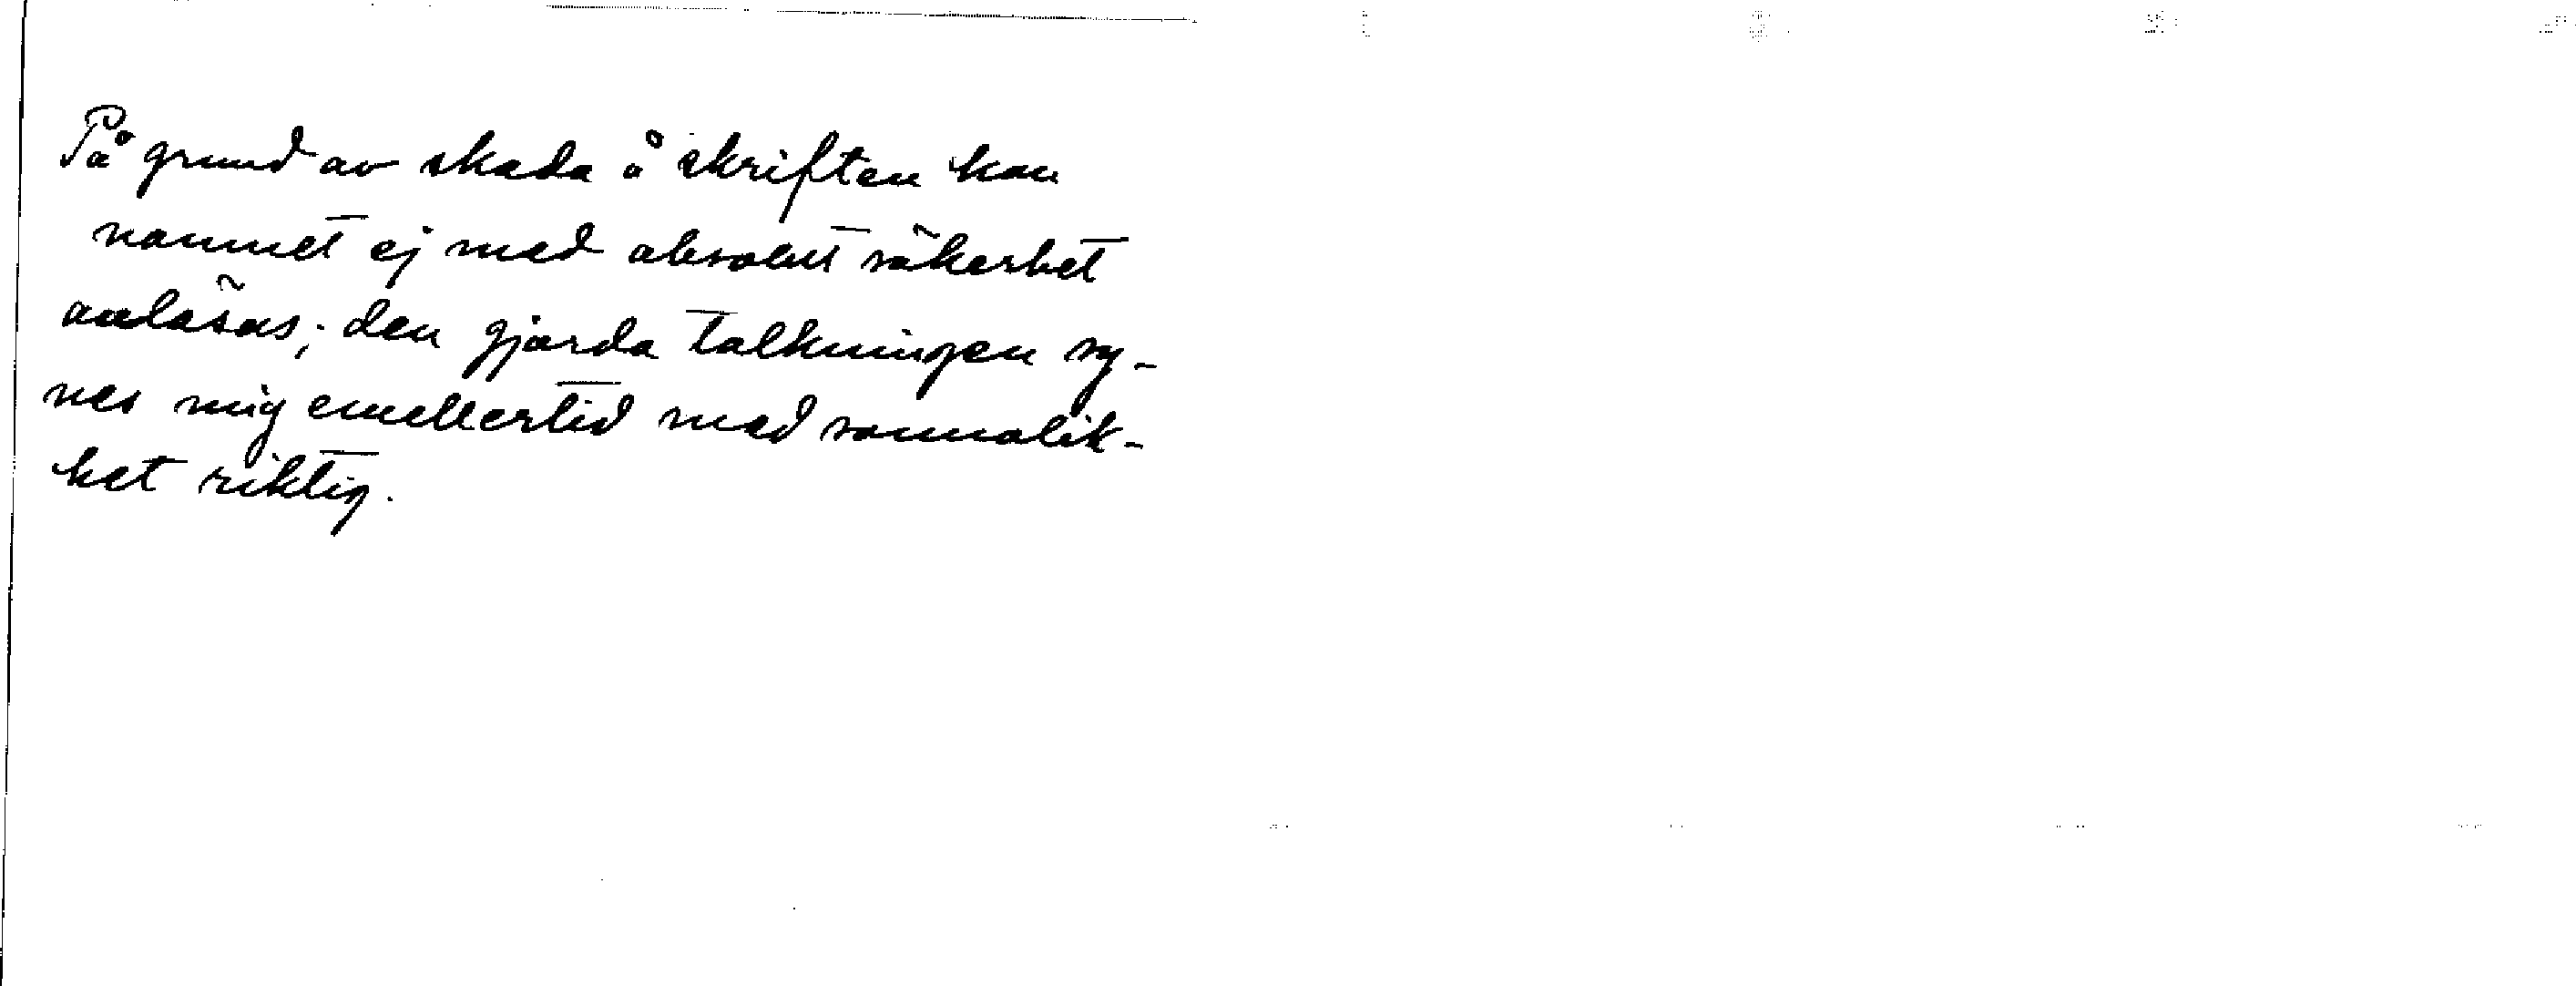 På grund av skada å skriften kan
namnet ej med absolut säkerhet
avläsas; den gjorda tolkningen sy-
nes mig emellertid med sannolik-
het riktig.